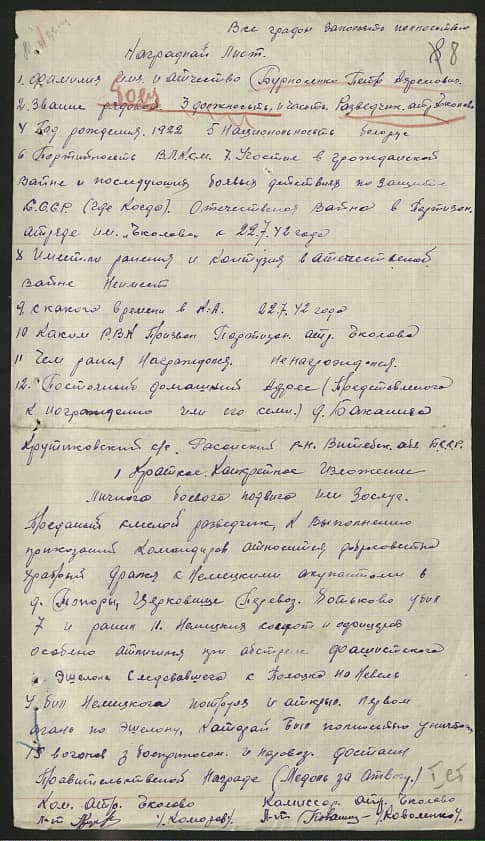 Все графы заполнять полностью
8
Наградной Лист.
1. Фамилия имя и отчество (Бурносенко Петр
2. Звание рядовой 3 должность, и часть. Разведчик. отр. Чкалова
4 Год рождения. 1922 5 Национальность белорус
6 Партийность В.Л.К.С.М. 7. Участие в гражданской
Войне и последующих боевых действиях по защите
С.С.С.Р. (где Когда). Отечественая Война в Партизан.
отряде им. Чколова с 22.7.42 года
8 Имеет ли ранения и контузия в отечественой
Войне Неимеет
9. с какого времени в К.А. 22.7.42 года
10 Каким Р.В.К Призван Партизан. отр. Чколова
11 Чем ранея Награждался. Ненаграждался.
12. Постояный домашний Адрес (Представленого
к награждению или его семи.) д.
с/с. Расонский р-н. Витебск. обл Б.С.С.Р.
1 Краткое. Канкретное Изложение
личного боевого подвига или Заслуг.
Преданый смелой разведчик, к Выполнению
приказаний Командиров относится добросовестно
храбрый дражя с Немецкими акупантоми в
д. Топоры, Церковище Перевоз. убил
7 и ранил 11. Немецких солдот и офицеров
особено атличился при абстреле фашистского
Эшелона Следовавшего с Полоцка на Невель
Убил Немецкого патруля и аткрыл. первом
огонь по Эшелону, Каторай был полностью уничтож
15 вогонов з боеприпосом. и паровоз. достоин
Правительственой Награде (Медоль за Отвогу.) I ст
Ком. отр. Чколова Комиссор. отр. Чколово
Л-нт /Комозов/ Л-нт /Коволенко/.